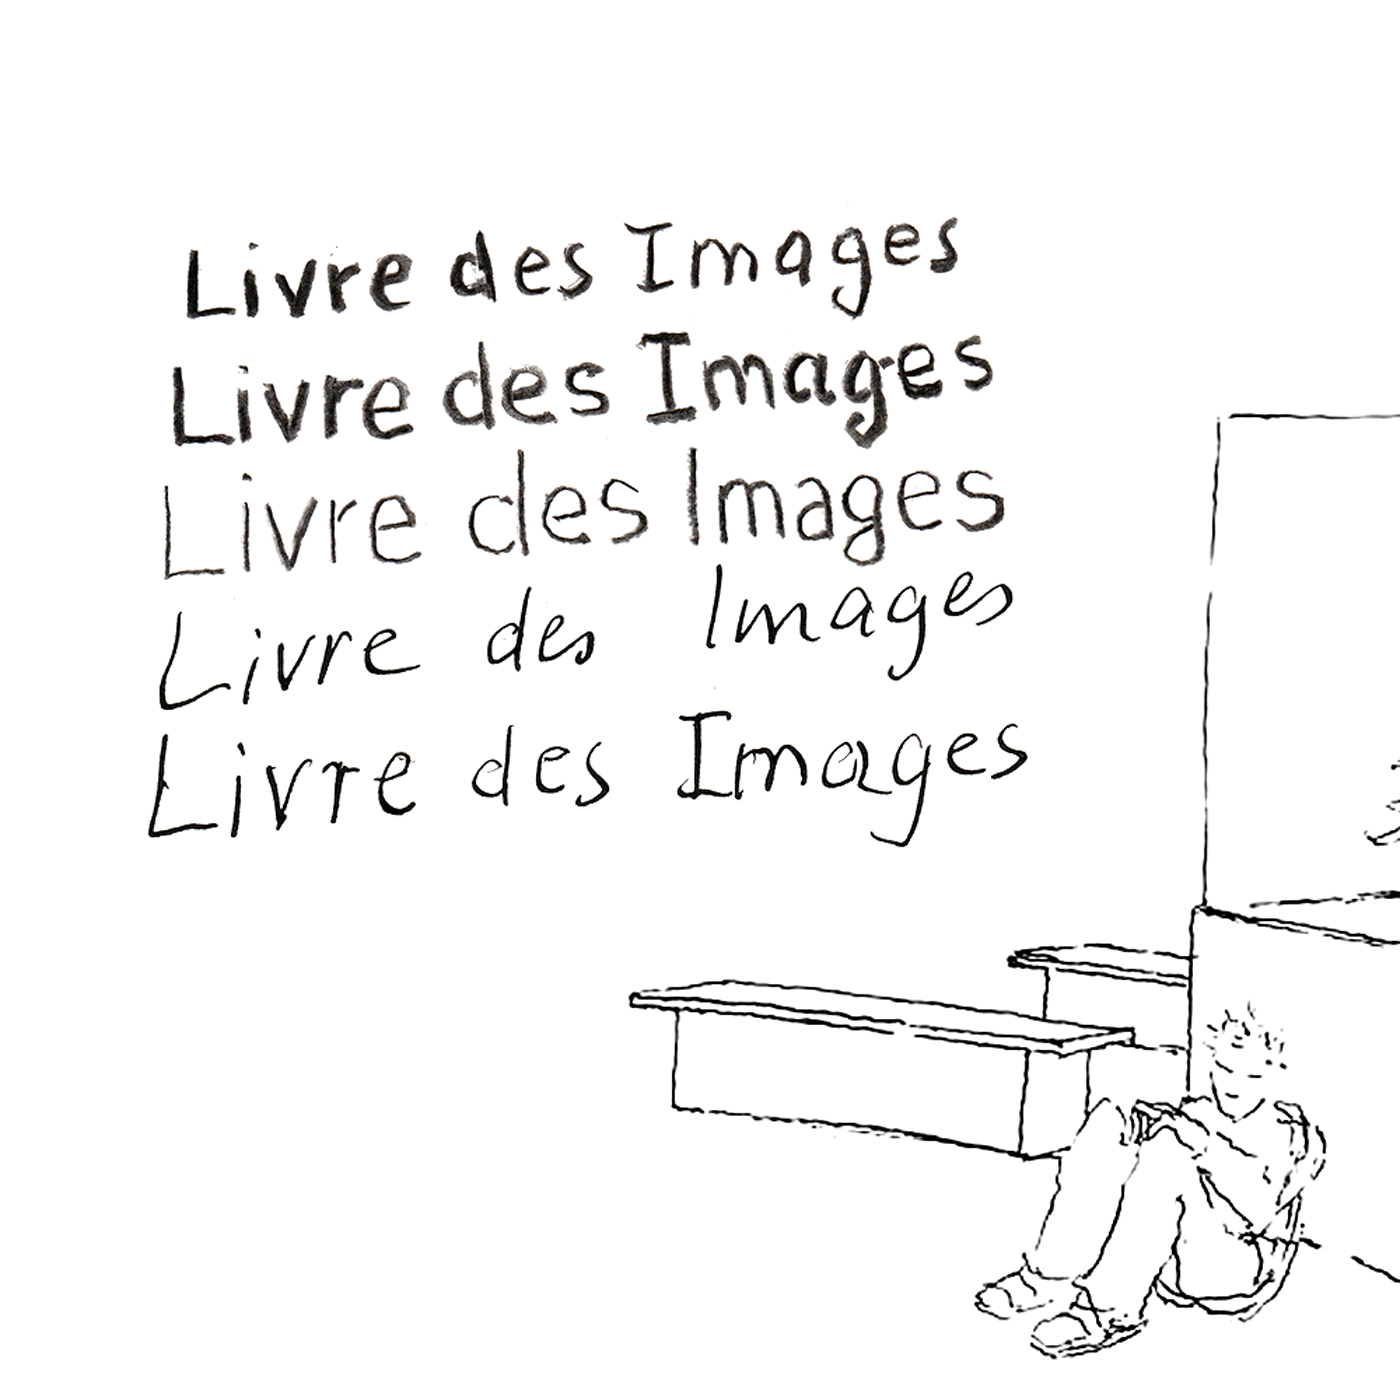 Livre des Images
Livre des Images
Livre des Images
Livre des Images
Livre des Images